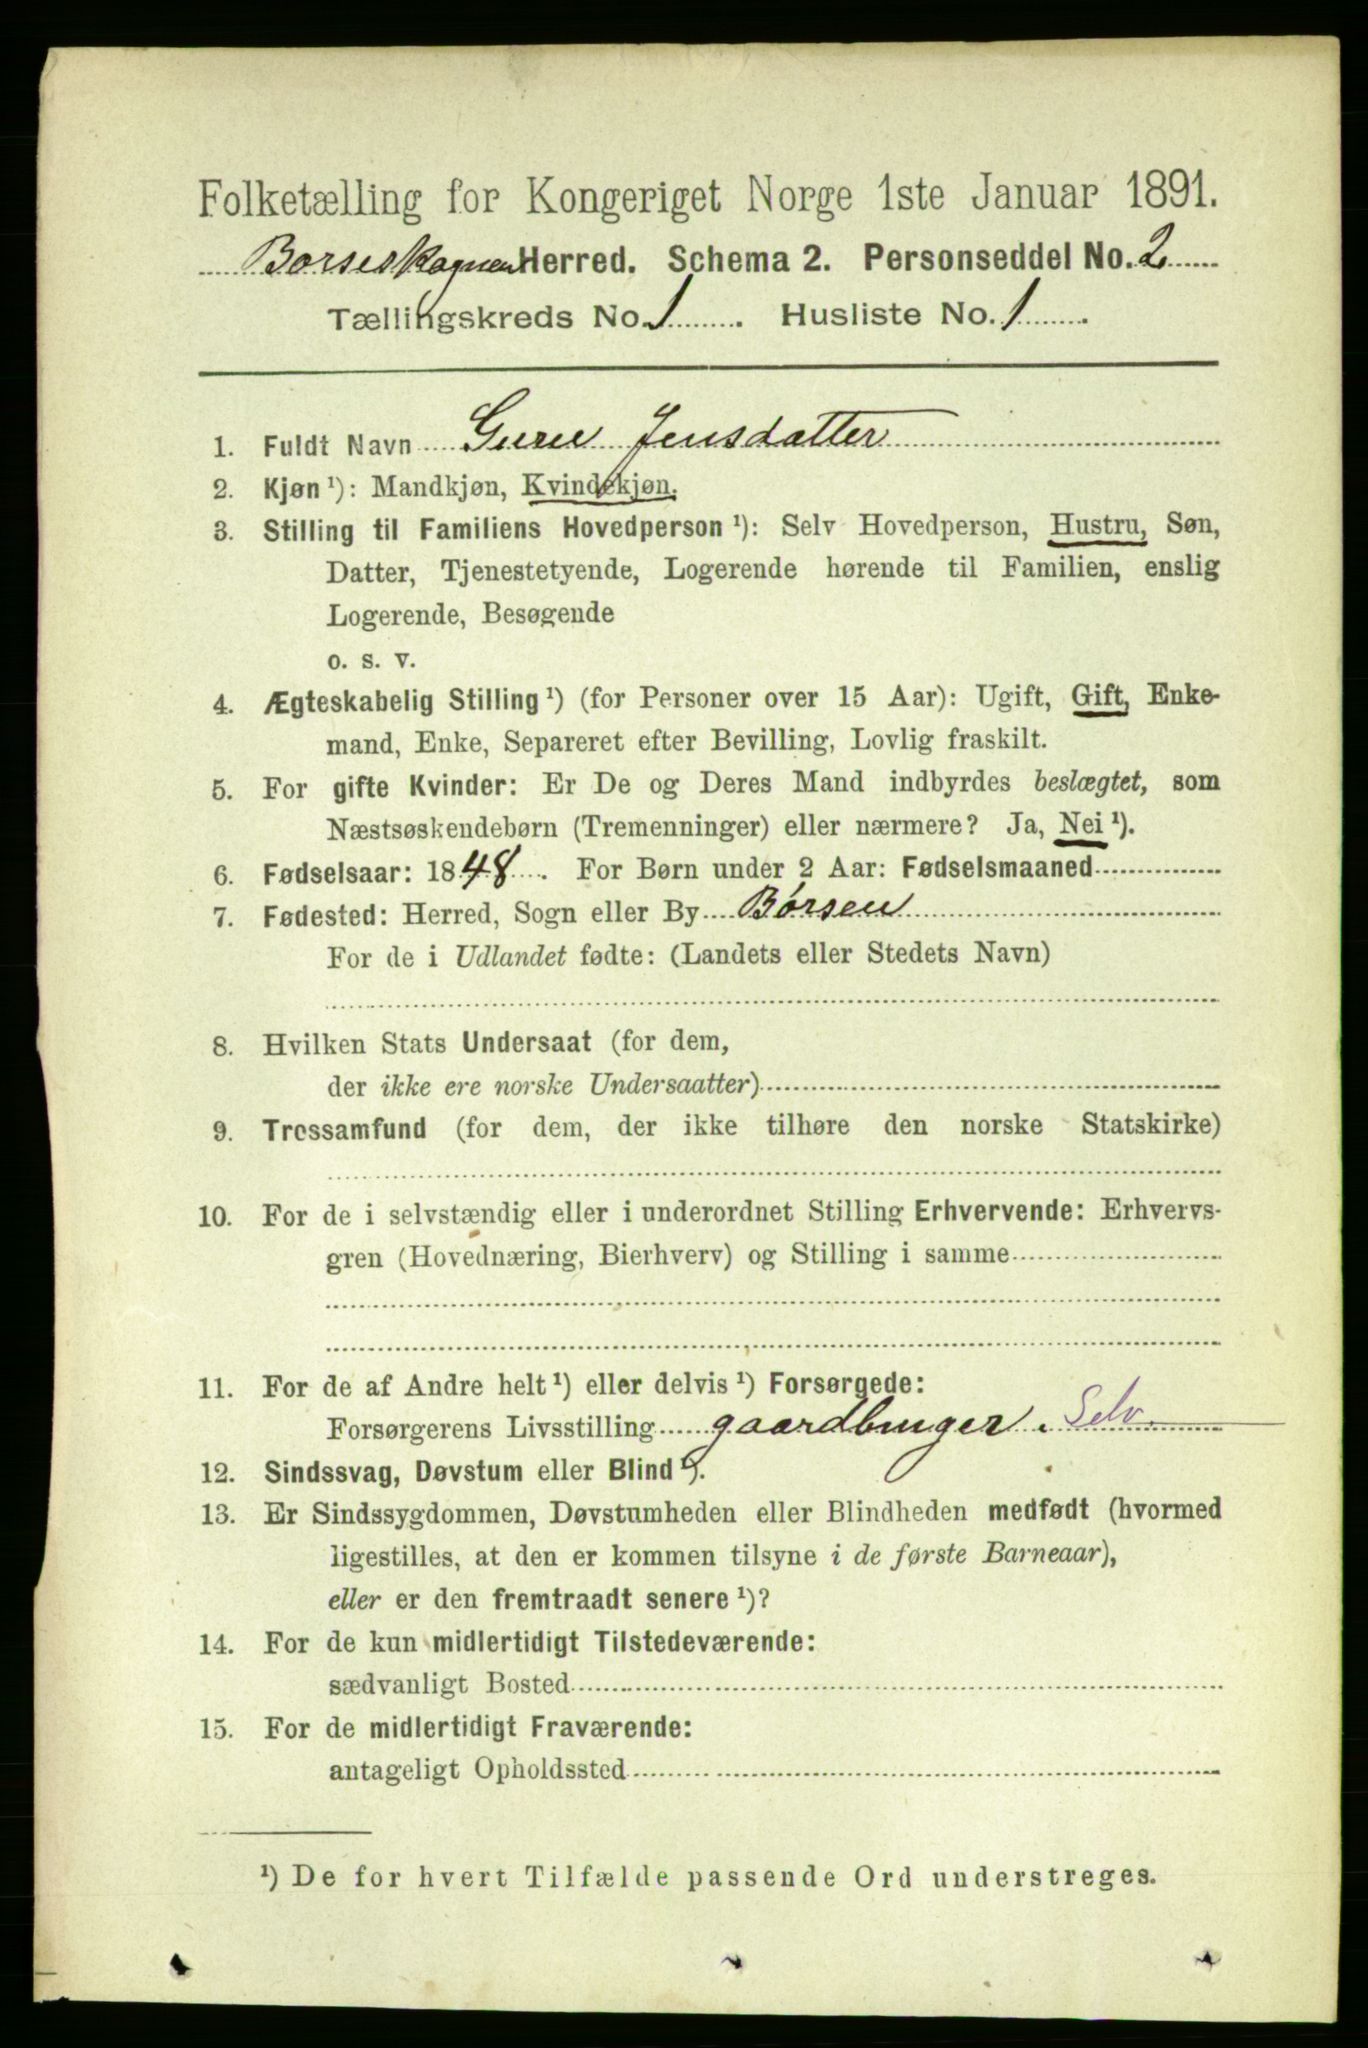 Folketælling for Kongeriget Norge 1ste Januar 1891.
Børseskognen Herred. Schema 2. Personseddel No. 2
Tællingskreds No. 1. Husliste No. 1.
1. Fuldt Navn Guru Jensdatter
2. Kjøn ¹): Mandkjøn, Kvindekjøn.
3. Stilling til Familiens Hovedperson ¹): Selv Hovedperson, Hustru, Søn,
Datter, Tjenestetyende, Logerende hørende til Familien, enslig
Logerende, Besøgende
o. s. v.
4. Ægteskabelig Stilling ¹) (for Personer over 15 Aar): Ugift, Gift, Enke-
mand, Enke, Separeret efter Bevilling, Lovlig fraskilt.
5. For gifte Kvinder: Er De og Deres Mand indbyrdes beslægtet, som
Næstsøskendebørn (Tremenninger) eller nærmere? Ja, Nei ¹).
6. Fødselsaar: 1848. For Børn under 2 Aar: Fødselsmaaned
7. Fødested: Herred, Sogn eller By Børsen
For de i Udlandet fødte: (Landets eller Stedets Navn)
8. Hvilken Stats Undersaat (for dem,
der ikke ere norske Undersaatter)
9. Trossamfund (for dem, der ikke tilhøre den norske Statskirke)
10. For de i selvstændig eller i underordnet Stilling Erhvervende: Erhvervs-
gren (Hovednæring, Bierhverv) og Stilling i samme
11. For de af Andre helt ¹) eller delvis ¹) Forsørgede:
Forsørgerens Livsstilling gaardbruger. Selv.
12. Sindssvag, Døvstum eller Blind ¹).
13. Er Sindssygdommen, Døvstumheden eller Blindheden medfødt (hvormed
ligestilles, at den er kommen tilsyne i de første Barneaar),
eller er den fremtraadt senere ¹)?
14. For de kun midlertidigt Tilstedeværende:
sædvanligt Bosted
15. For de midlertidigt Fraværende:
antageligt Opholdssted
¹) De for hvert Tilfælde passende Ord understreges.